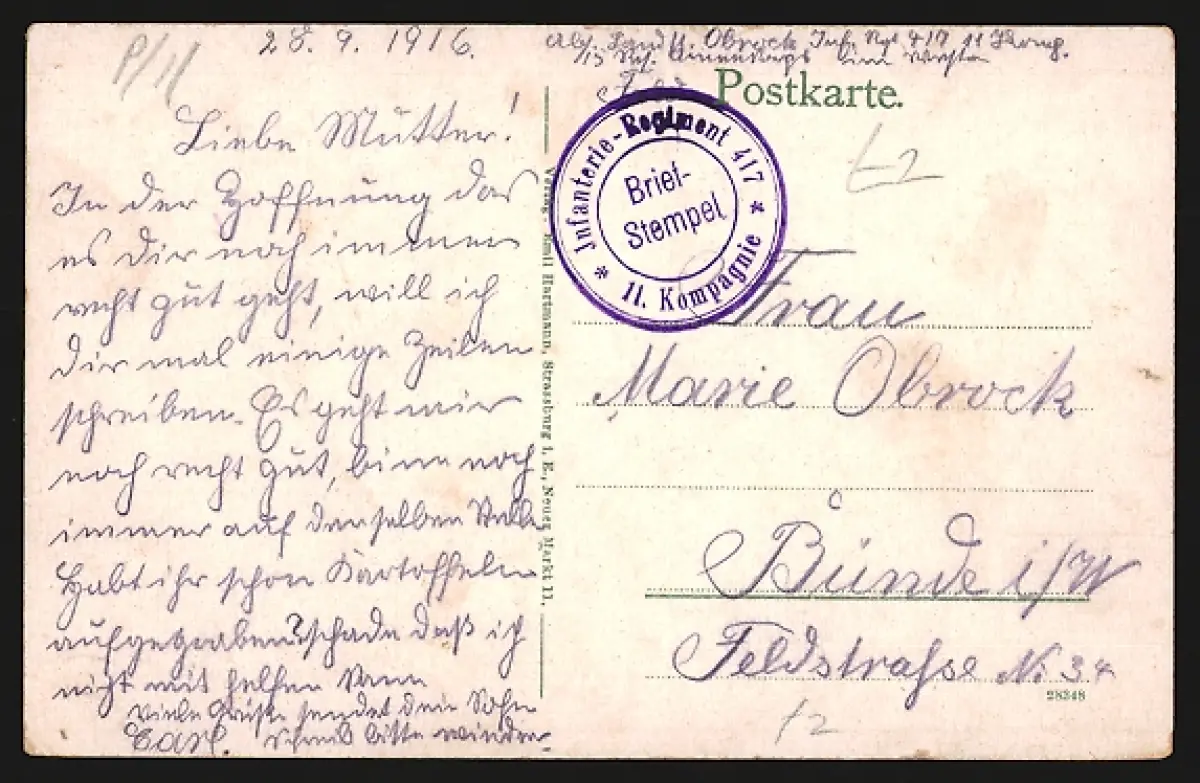 P/11
28. 9. 1916.
Liebe Mutter!
In der Hoffnung das
es dir noch immer
recht gut geht, will ich
dir mal einige Zeilen
schreiben. Es geht mir
noch recht gut, bin noch
immer auf derselben Stelle
Habt ihr schon Kartoffeln
aufgegraben? schade daß ich
nicht mit helfen kann
viele Grüße sendet dein Sohn
Carl. schreib bitte wieder
Verlag: Emil Hartmann, Strassburg i. E., Neuer Markt 11.
Abs. Landst. Obrock Inf. Rgt 417 11 Komp.
im Westen
Postkarte.
Infanterie-Regiment 417
Brief-
Stempel
11. Kompagnie
t2
Frau
Marie Obrock
Bünde i/W
Feldstraße No 34
28348
t2